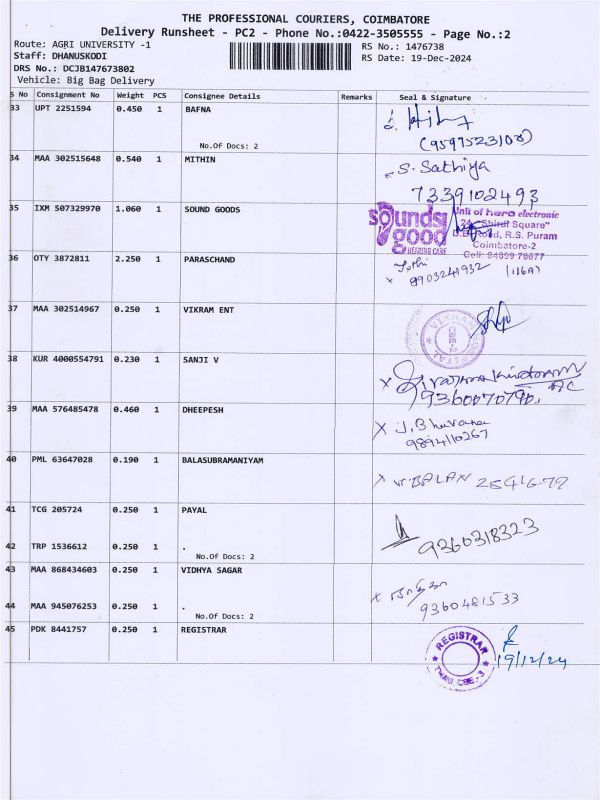 THE PROFESSIONAL COURIERS, COIMBATORE
Delivery Runsheet - PC2 - Phone No.:0422-3505555 - Page No.:2
Route: AGRI UNIVERSITY -1 RS No.: 1476738
Staff: DHANUSKODI RS Date: 19-Dec-2024
DRS No.: DCJB147673802
Vehicle: Big Bag Delivery
S No Consignment No Weight PCS Consignee Details Remarks Seal & Signature
33 UPT 2251594 0.450 1 BAFNA
No.Of Docs: 2
34 MAA 302515648 0.540 1 MITHIN S. Sathiya
7339102493
35 IXM 507329970 1.060 1 SOUND GOODS
sounds good HEARING CARE
Unit of hero electronic
24, "Shirdi Square"
D.B. Road, R.S. Puram
Coimbatore-2
Cell: 84899 78877
36 OTY 3872811 2.250 1 PARASCHAND Jothi
x 8903241932 (116A)
37 MAA 302514967 0.250 1 VIKRAM ENT
38 KUR 4000554791 0.230 1 SANJI V x
9360070790.
39 MAA 576485478 0.460 1 DHEEPESH x J. Bhavana
9894110267
40 PML 63647028 0.190 1 BALASUBRAMANIYAM x V. BALAN 2541679
41 TCG 205724 0.250 1 PAYAL
9360318323
42 TRP 1536612 0.250 1 .
No.Of Docs: 2
43 MAA 868434603 0.250 1 VIDHYA SAGAR x
9360481533
44 MAA 945076253 0.250 1 .
No.Of Docs: 2
45 PDK 8441757 0.250 1 REGISTRAR
REGISTRAR
TNAU, CBE-3
19/12/24